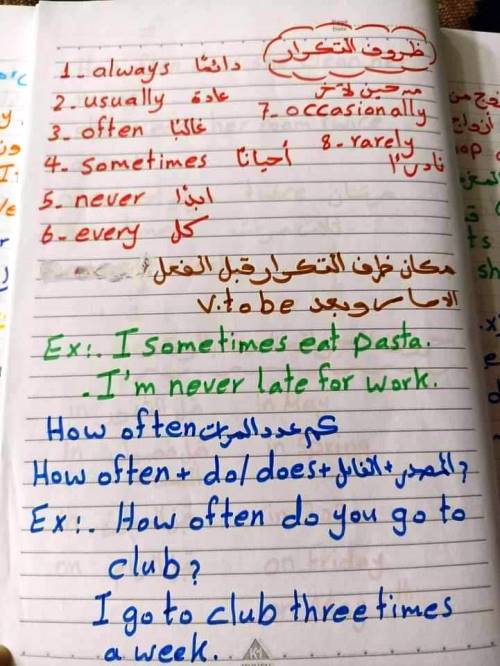 ظروف التكرار
1- always دائمًا
2- usually عادة
من حين لآخر
7- occasionally
3- often غالبًا
8- rarely
نادرًا
4- sometimes أحيانًا
5- never ابدًا
6- every كل
مكان ظرف التكرار قبل الفعل
الاساسي وبعد v.to be
Ex:. I sometimes eat pasta.
. I'm never late for work.
How often كم عدد المرات
How often + do/does + الفاعل + المصدر ?
Ex:. How often do you go to
club?
I go to club three times
a week.